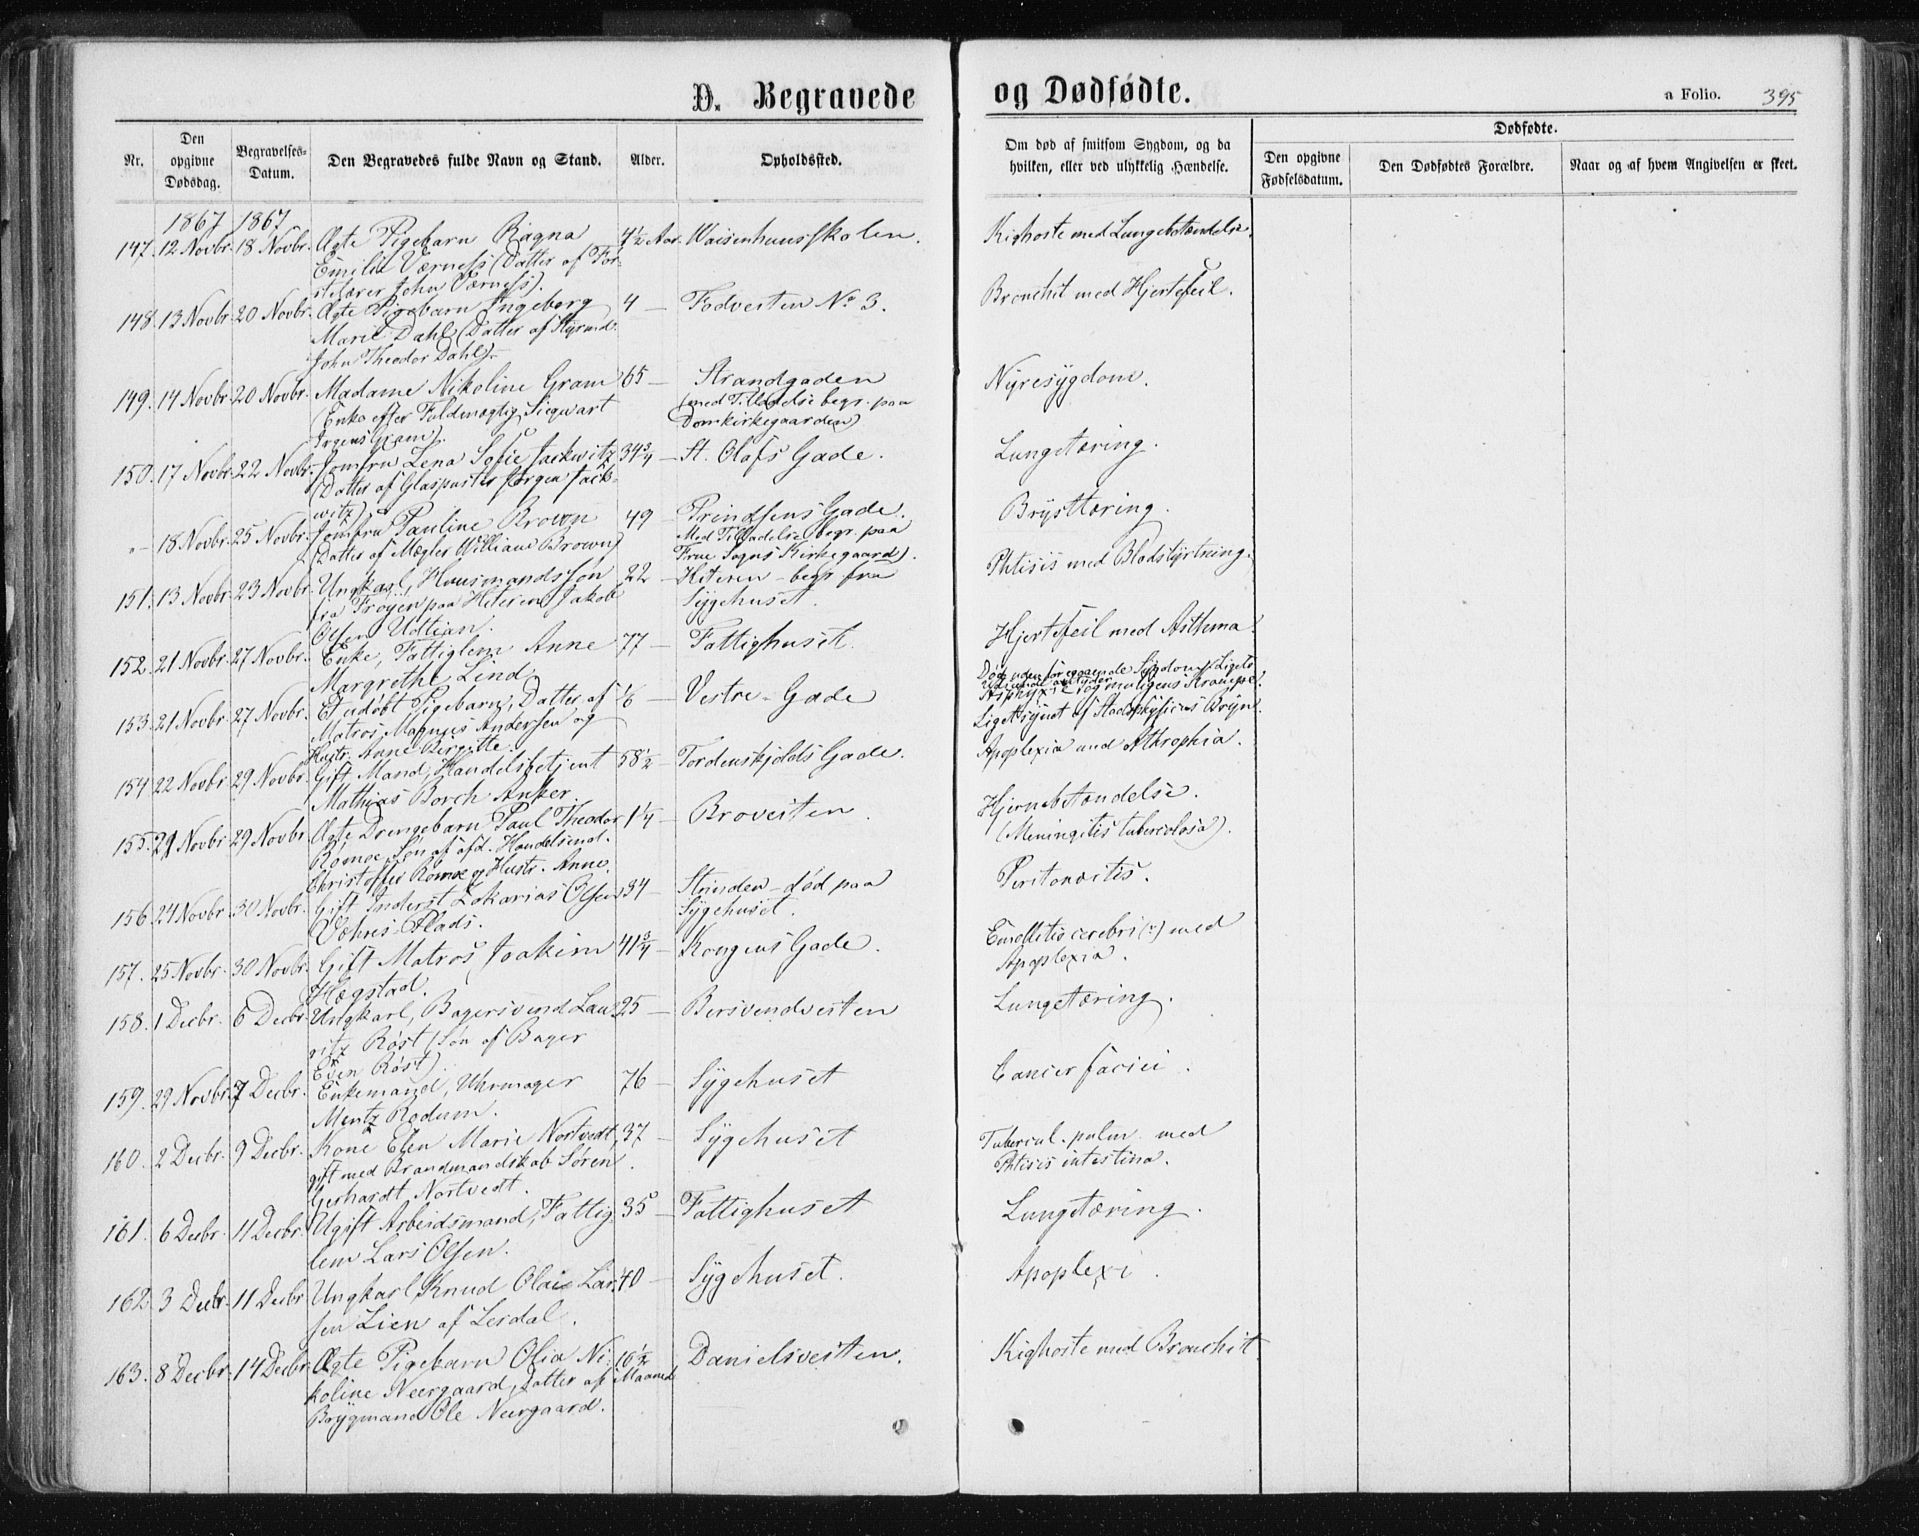 D. Begravede og Dødfødte.
a Folio. 395
Nr.
Den opgivne Dødsdag.
Begravelses-Datum.
Den Begravedes fulde Navn og Stand.
Alder.
Opholdssted.
Om død af smitsom Sygdom, og da hvilken, eller ved ulykkelig Hændelse.
Dødfødte.
Den opgivne Fødselsdatum.
Den Dødfødtes Forældre.
Naar og af hvem Angivelsen er skeet.
1867 1867
147. 12 Novbr. 18 Novbr. Ægte Pigebarn Ragna 4½ Aar. Waisenhuusskolen. Kighoste med Lungebetændelse.
Emilie Værness (Datter af For-
stelærer John Værness).
148. 13 Novbr. 20 Novbr. Ægte Pigebarn Ingeborg 4 — Fodvesten No 3. Bronchit med Hjertefeil.
Marie Dahl (Datter af Styrmd.
John Theodor Dahl).
149. 14 Novbr. 20 Novbr. Madame Nikoline Gram 65 — Strandgaden Nyresygdom.
(Enke efter Fuldmægtig Siegwart (med Tilladelse begr. paa
Irgens Gram). Domkirkegaarden)
150. 17 Novbr. 22 Novbr. Jomfru Lena Sofie Jackwitz 34¾ — St. Olafs Gade. Lungetæring.
(Datter af Glaspuster Jørgen Jack-
witz)
"— 18 Novbr. 25 Novbr. Jomfru Pauline Brown 49 — Prindsens Gade. Brysttæring.
(Datter af Mægler William Brown) Med Tilladelse begr. paa
Frue Sogns Kirkegaard).
151. 13 Novbr. 23 Novbr. Ungkarl, Huusmandssøn 22 — Hiteren — begr. fra Phtisis med Blodstyrtning.
fra Frøyen paa Hiteren Jakob Sygehuset.
Olsen Udtian.
152. 21 Novbr. 27 Novbr. Enke, Fattiglem Anne 77 — Fattighuset. Hjertefeil med Asthma.
Margrethe Lind.
153. 21 Novbr. 27 Novbr. Et udøbt Pigebarn, Datter af ⅙ — Vestre-Gade Død uden foregaaende Sygdom. Ligets
Matros Magnus Andersen og Udseende antyder
Hustr. Anne Bergitte. Asphyxie og muligens Krampe.
Liget synet af Stadsphysicus Bøyn.
154 22 Novbr. 29 Novbr. Gift Mand, Handelsbetjent 58½ — Tordenskjolds Gade. Apoplexia med Athrophia.
Mathias Borch Anker.
155. 29 Novbr. 29 Novbr. Ægte Drengebarn Paul Theodor 1¼ — Brovesten. Hjernebetændelse.
Romoe Søn af afd. Handelsmd. (Meningitis tuberculosa).
Christoffer Romoe og Hustr. Anne.
156. 24 Novbr. 30 Novbr. Gift Inderst Zakarias Olsen 34 — Strinden — død paa Peritonæitis.
Vehus-Plads. Sygehuset.
157. 25 Novbr. 30 Novbr. Gift Matros Joakim 41¾ — Kongens Gade. Emollitio cerebri (?) med
Hægstad. Apoplexia.
158. 1 Decbr. 6 Decbr. Ungkarl, Bagersvend Lau- 25 — Bersvendvesten Lungetæring.
ritz Røst (Søn af Bager
Even Røst).
159. 29 Novbr. 7 Decbr. Enkemand, Uhrmager 76 — Sygehuset Cancer faciei.
Mentz Rodum.
160. 2 Decbr. 9 Decbr. Kone Elen Marie Nortvedt, 37 — Sygehuset Tubercul. pulm. med
gift med Brandmandskab Søren Phtisis intestina.
Gerhardt Nortvedt.
161. 6 Decbr. 11 Decbr. Ugift Arbeidsmand, Fattig- 35 — Fattighuset Lungetæring.
lem Lars Olsen.
162. 3 Decbr. 11 Decbr. Ungkarl, Knud Olai Lar- 40 — Sygehuset. Apoplexi.
sen Lien af Lesdal.
163. 8 Decbr. 14 Decbr. Ægte Pigebarn Olia Ni- 10½ Danielsvesten. Kighoste med Bronchit
koline Neergaard, Datter af Maaned
Brygmand Ole Neergaard.